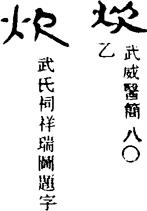 炊
武威醫簡 八〇
乙
炊
武氏祠祥瑞圖題字